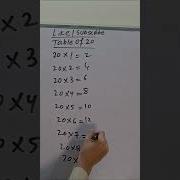 Like / Subscribe
Table of 20
20 x 1 = 2
20 x 2 = 4
20 x 3 = 6
20 x 4 = 8
20 x 5 = 10
20 x 6 = 12
20 x 7 =
20 x 8
20 x